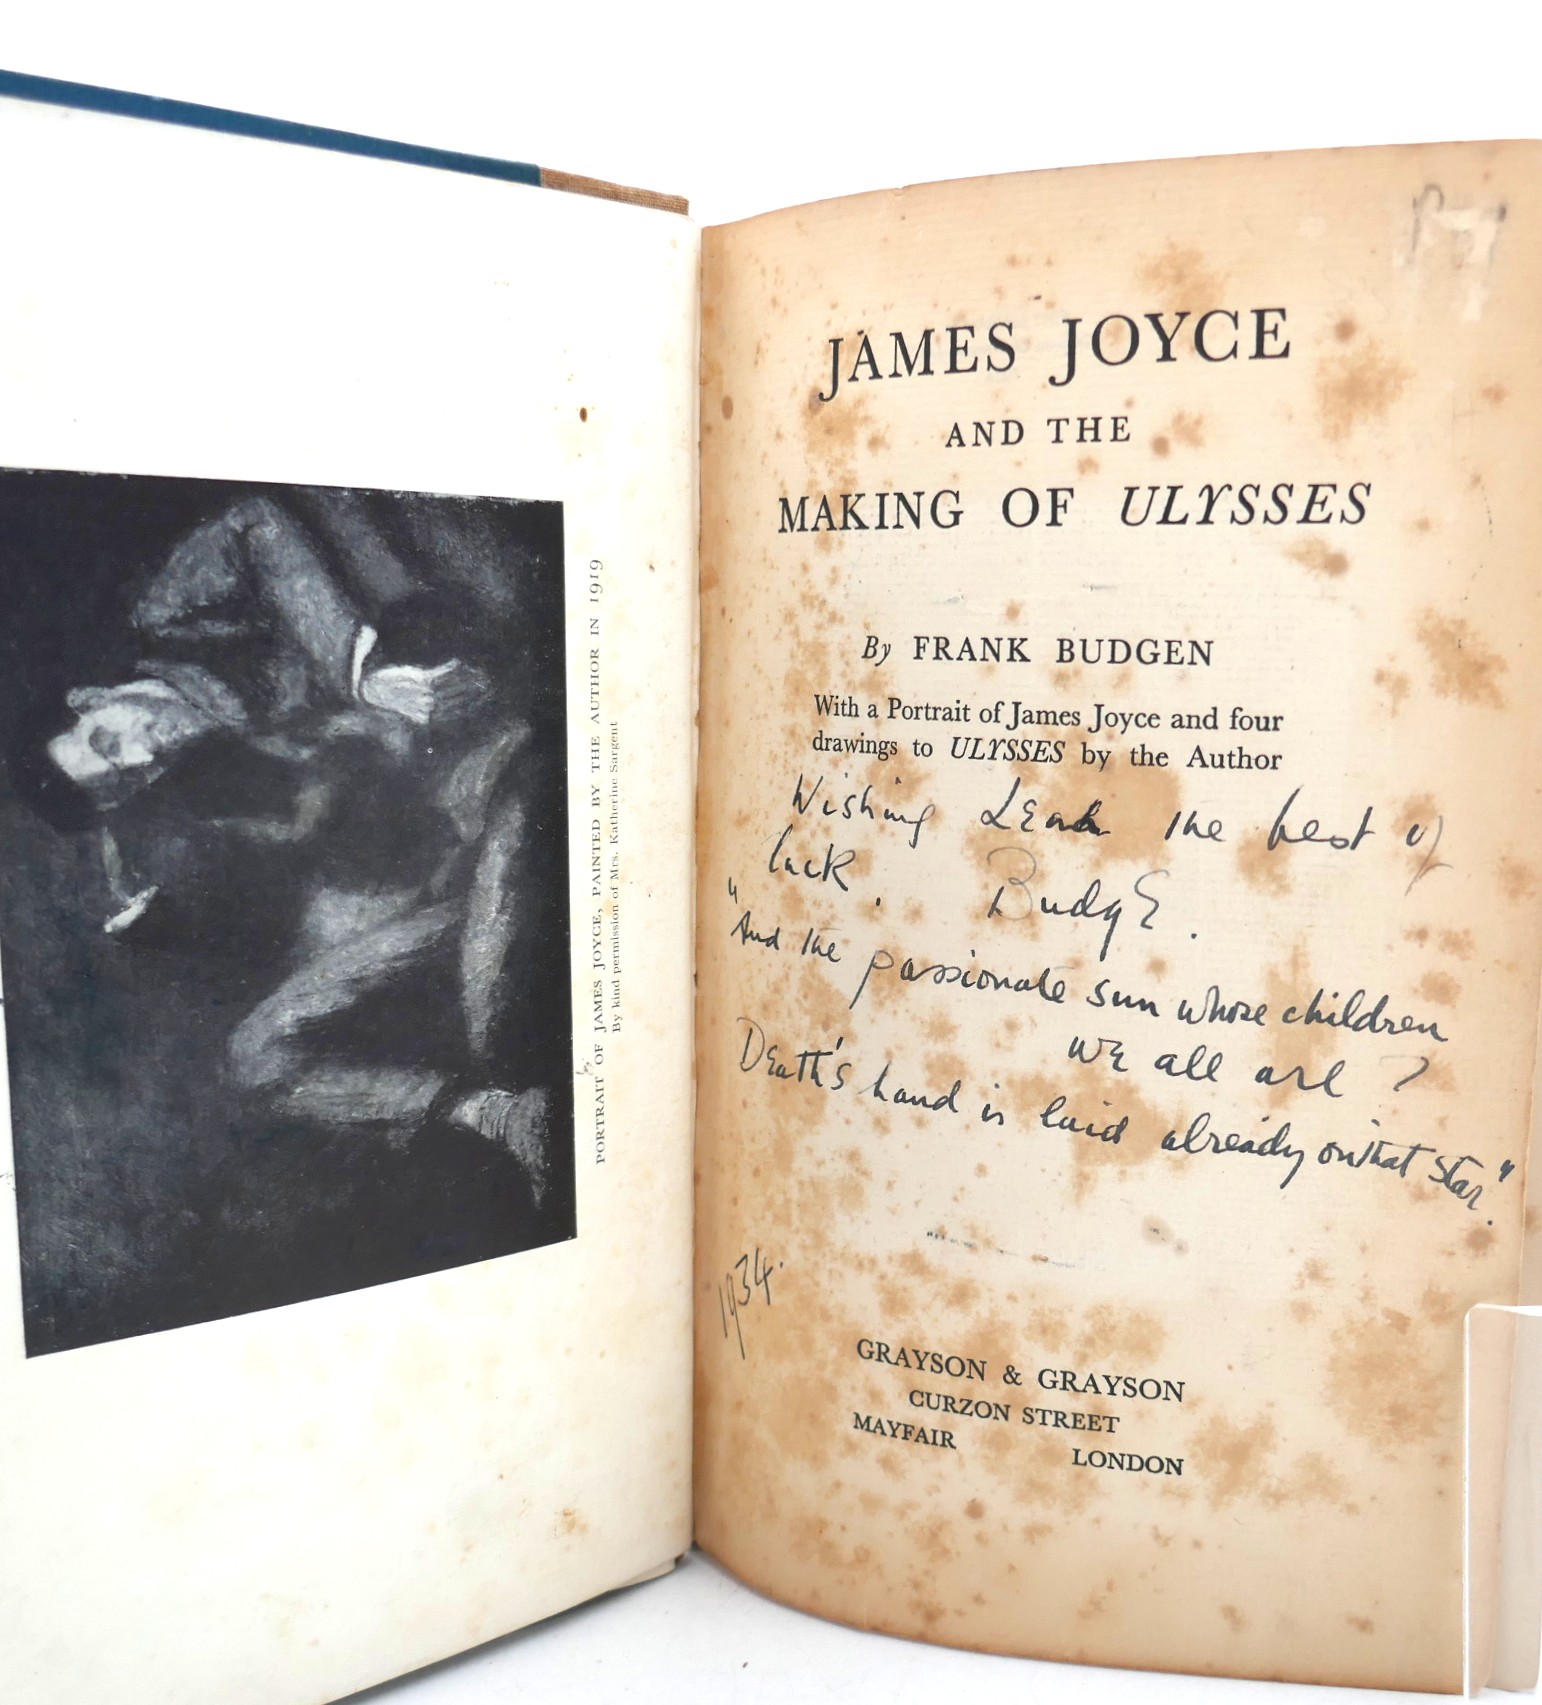 PORTRAIT OF JAMES JOYCE, PAINTED BY THE AUTHOR IN 1919
By kind permission of Mrs. Katherine Sargent
JAMES JOYCE
AND THE
MAKING OF ULYSSES
By FRANK BUDGEN
With a Portrait of James Joyce and four
drawings to ULYSSES by the Author
Wishing the best of
luck. Budge.
"And the passionate sun whose children
we all are?
Death's hand is laid already on that star."
1934.
GRAYSON & GRAYSON
CURZON STREET
MAYFAIR LONDON